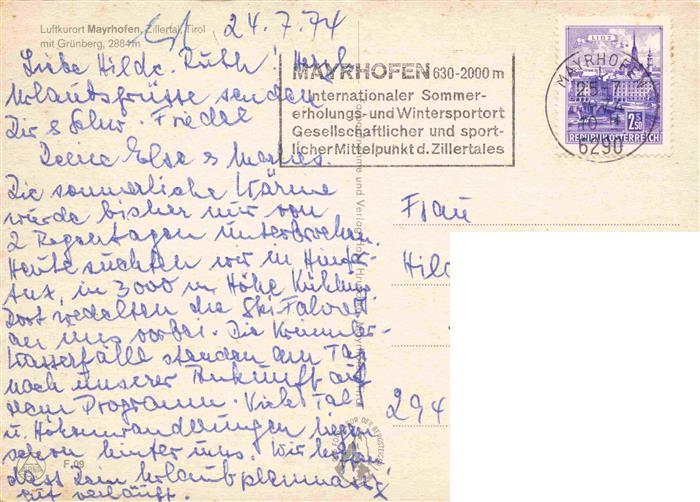 Luftkurort Mayrhofen, Zillertal, Tirol
mit Grünberg, 2884m
24.7.74
Liebe Hilde, Ruth! Herzl.
Urlaubsgrüsse senden
Dir & Schw. Friedel
Deine Else &
Die sommerliche Wärme
wurde bisher nur von
2 Regentagen unterbrochen.
Heute suchten wir in Hinter-
tux, in 3000 m Höhe Kühlung
Dort wedelten die Ski
an uns vorbei. Die Krimmler-
Wasserfälle standen am Tag
nach unserer Ankunft auf
dem Programm. Viele Tal
u. Höhenwandlungen liegen
schon hinter uns. Wir hoffen
dass Dein Urlaub planmäßig
gut verläuft.
F 09
MAYRHOFEN 630-2000 m
Internationaler Sommer-
erholungs- und Wintersportort
Gesellschaftlicher und sport-
licher Mittelpunkt d. Zillertales
LINZ
2.50
REPUBLIK ÖSTERREICH
MAYRHOFEN
6290
Frau
Hil
294